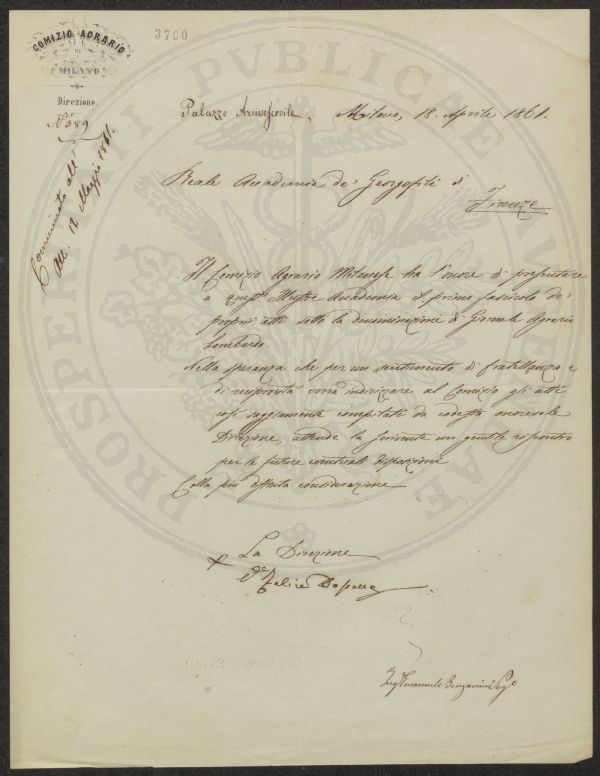 3760
COMIZIO AGRARIO
DI
MILANO
Direzione
N° 389
Comunicato all'
Ad. 12 Maggio 1861.
Palazzo Arcivescovile, Milano, 18. Aprile 1861.
Reale Accademia de' Georgofili di
Firenze
Il Comizio Agrario Milanese ha l'onore di presentare
a quest' Illustre Accademia il primo fascicolo de'
proprii atti sotto la denominazione di Giornale Agrario
Lombardo.
Nella speranza che per un sentimento di fratellanza e
di reciprocità vorrà indirizzare al Comizio gli atti
così saggiamente compilati da codesta onorevole
Direzione, attende la scrivente un gentile riscontro
per le future eventuali disposizioni
Colla più distinta considerazione
La Direzione
Felice
Ing. Emanuele Bonzanini Seg.°
PROSPERITATI PVBLICAE AVGENDAE